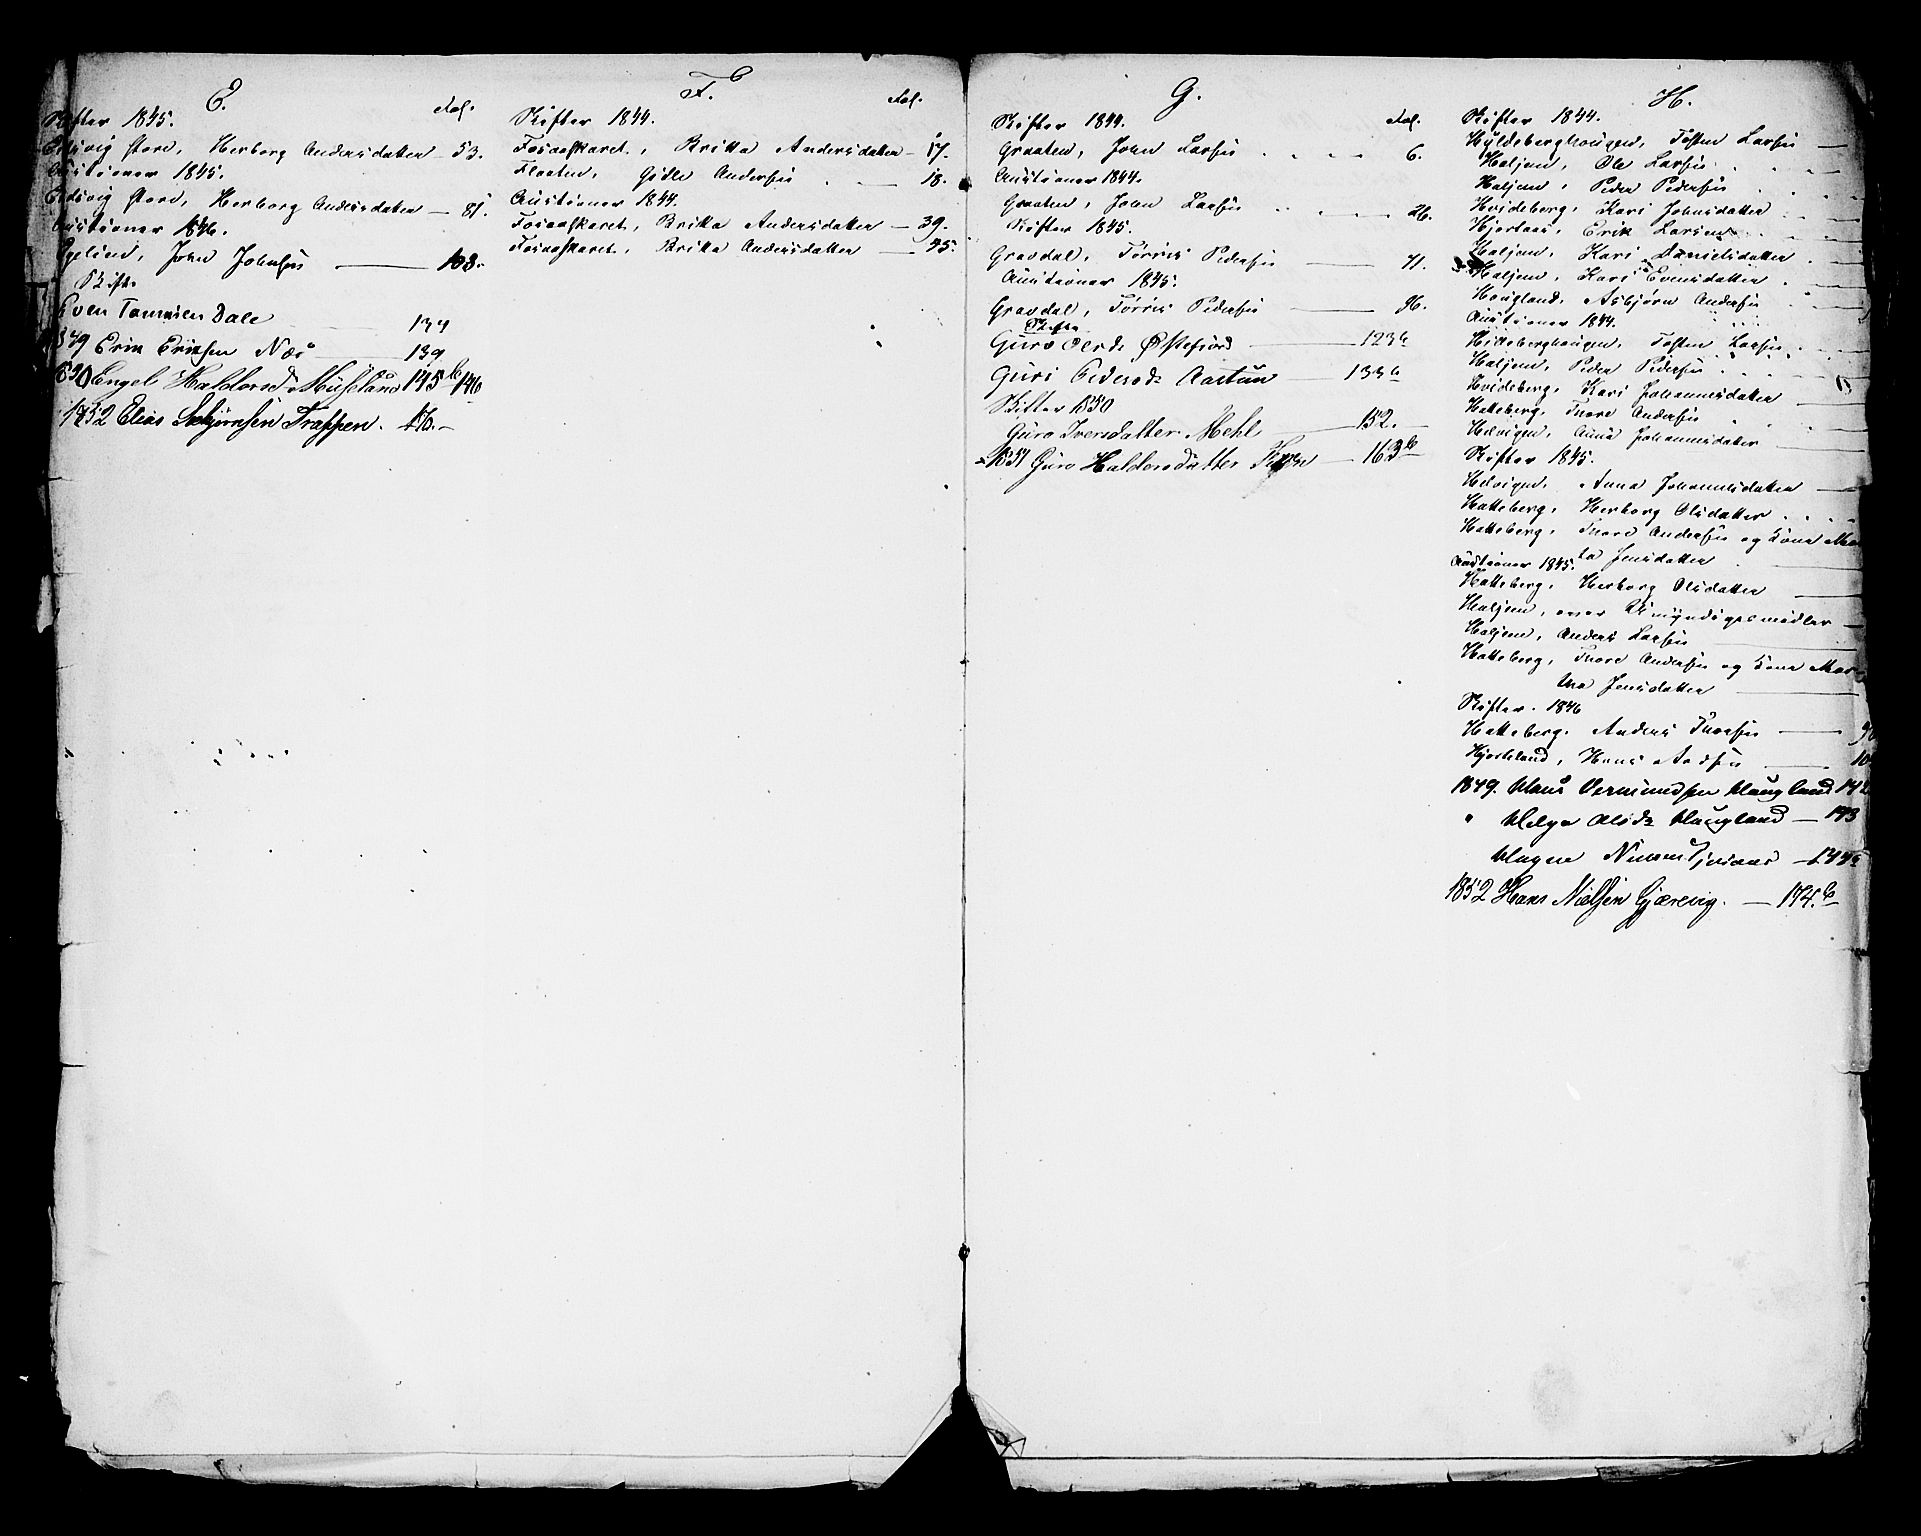 E.
Fol.
Skifter 1845.
Edsvig store, Herborg Andersdatter — 53.
Auctioner 1845.
Edsvig store, Herborg Andersdatter — 81.
Auctioner 1846.
John Johnsen — 103.
Skifte
Even Dale 137
1849 Erik Eriksen Næs 139
1850 Engel Haldorsd. Huseland 145b 146
1852 Elias Trappen. 170.
F.
Fol.
Skifter 1844.
Fosaaskaret, Britta Andersdatter — 17.
Flaaten, Gidle Andersen — 18.
Auctioner 1844.
Fosaaskaret, Britta Andersdatter — 39.
Fosaaskaret, Britta Andersdatter — 45.
G.
Fol.
Skifter 1844.
Graaten, John Larsen 6.
Auctioner 1844.
Graaten, John Larsen 26.
Skifter 1845.
Gravdal, Tørris Pedersen — 71.
Auctioner 1845.
Gravdal, Tørris Pedersen — 96.
Skifte
Guro Olsd. Østefiord — 123b
Guri Pedersd. Aastun — 133b
Skifter 1850
Guro Iversdatter Mehl — 152.
1851 Guro Haldorsdatter — 163b
H.
Skifter 1844.
Hyldeberghougen, Tosten Larsen —
Haljem, Ole Larsen
Haljem, Peder Pedersen
Hvideberg, Kari Johnsdatter
Hjortaas, Erik Larsen
Haljem, Kari Danielsdatter
Haljem, Kari Evensdatter
Hougland, Asbjørn Andersen
Auctioner 1844.
Hildeberghougen, Tosten Larsen
Haljem, Peder Pedersen
Hvideberg, Kari Johannesdatter
Hatteberg, Thore Andersen
Helvigen, Anna Johannesdatter
Skifter 1845.
Helvigen, Anna Johannesdatter —
Hatteberg, Herborg Olsdatter
Hatteberg, Thore Andersen og Kone Mar
ta Jensdatter
Auctioner 1845.
Hatteberg, Herborg Olsdatter —
Haljem, over Umyndigesmidler —
Haljem, Anders Larsen —
Hatteberg, Thore Andersen og Kone Mar
tha Jensdatter —
Skifter 1846
Hatteberg, Anders Thoresen —
Hjorteland, Hans —
1849. Hans Vermundsen Haugland 142
" Helge Olsd. Haugland — 143
Magne
1852 Hans Nielsen Gjærevig. — 174.b